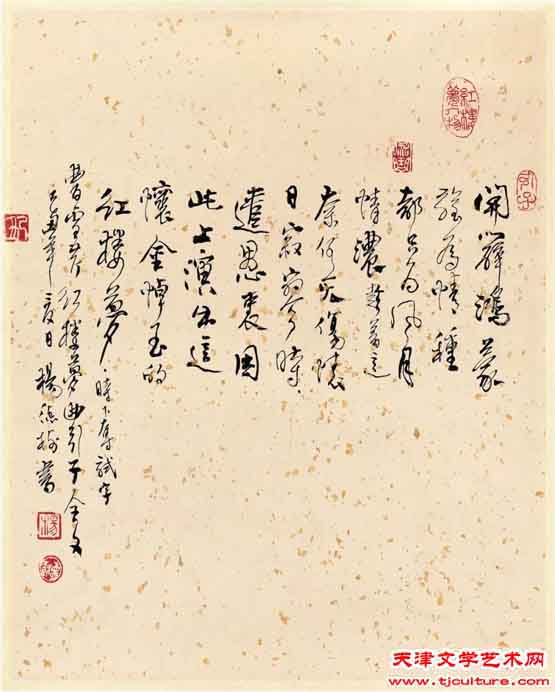 開闢鴻蒙
誰為情種
都只為風月
情濃趁着這
奈何天傷懷
日寂寥時
遣愚衷因
此上演出這
懷金悼玉的
紅樓夢 時下奪試字
曹雪芹紅樓夢曲引子全文
年夏日 楊 書
天津文学艺术网
www.tjculture.com